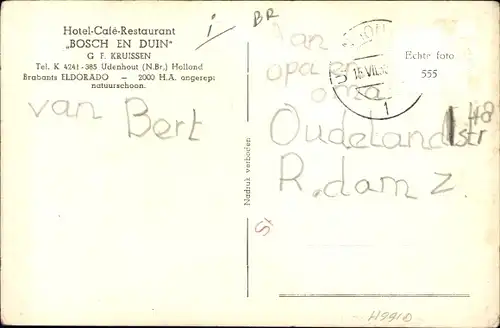 Hotel-Café-Restaurant
„BOSCH EN DUIN"
G. F. KRUISSEN
Tel. K 4241-385 Udenhout (N.Br.) Holland
Brabants ELDORADO — 2000 H.A. ongerept
natuurschoon.
van Bert
i
BR
Aan
opa en
oma
Oudeland
str
48
R.dam Z.
Echte foto
555
1
Nadruk verboden
H991D